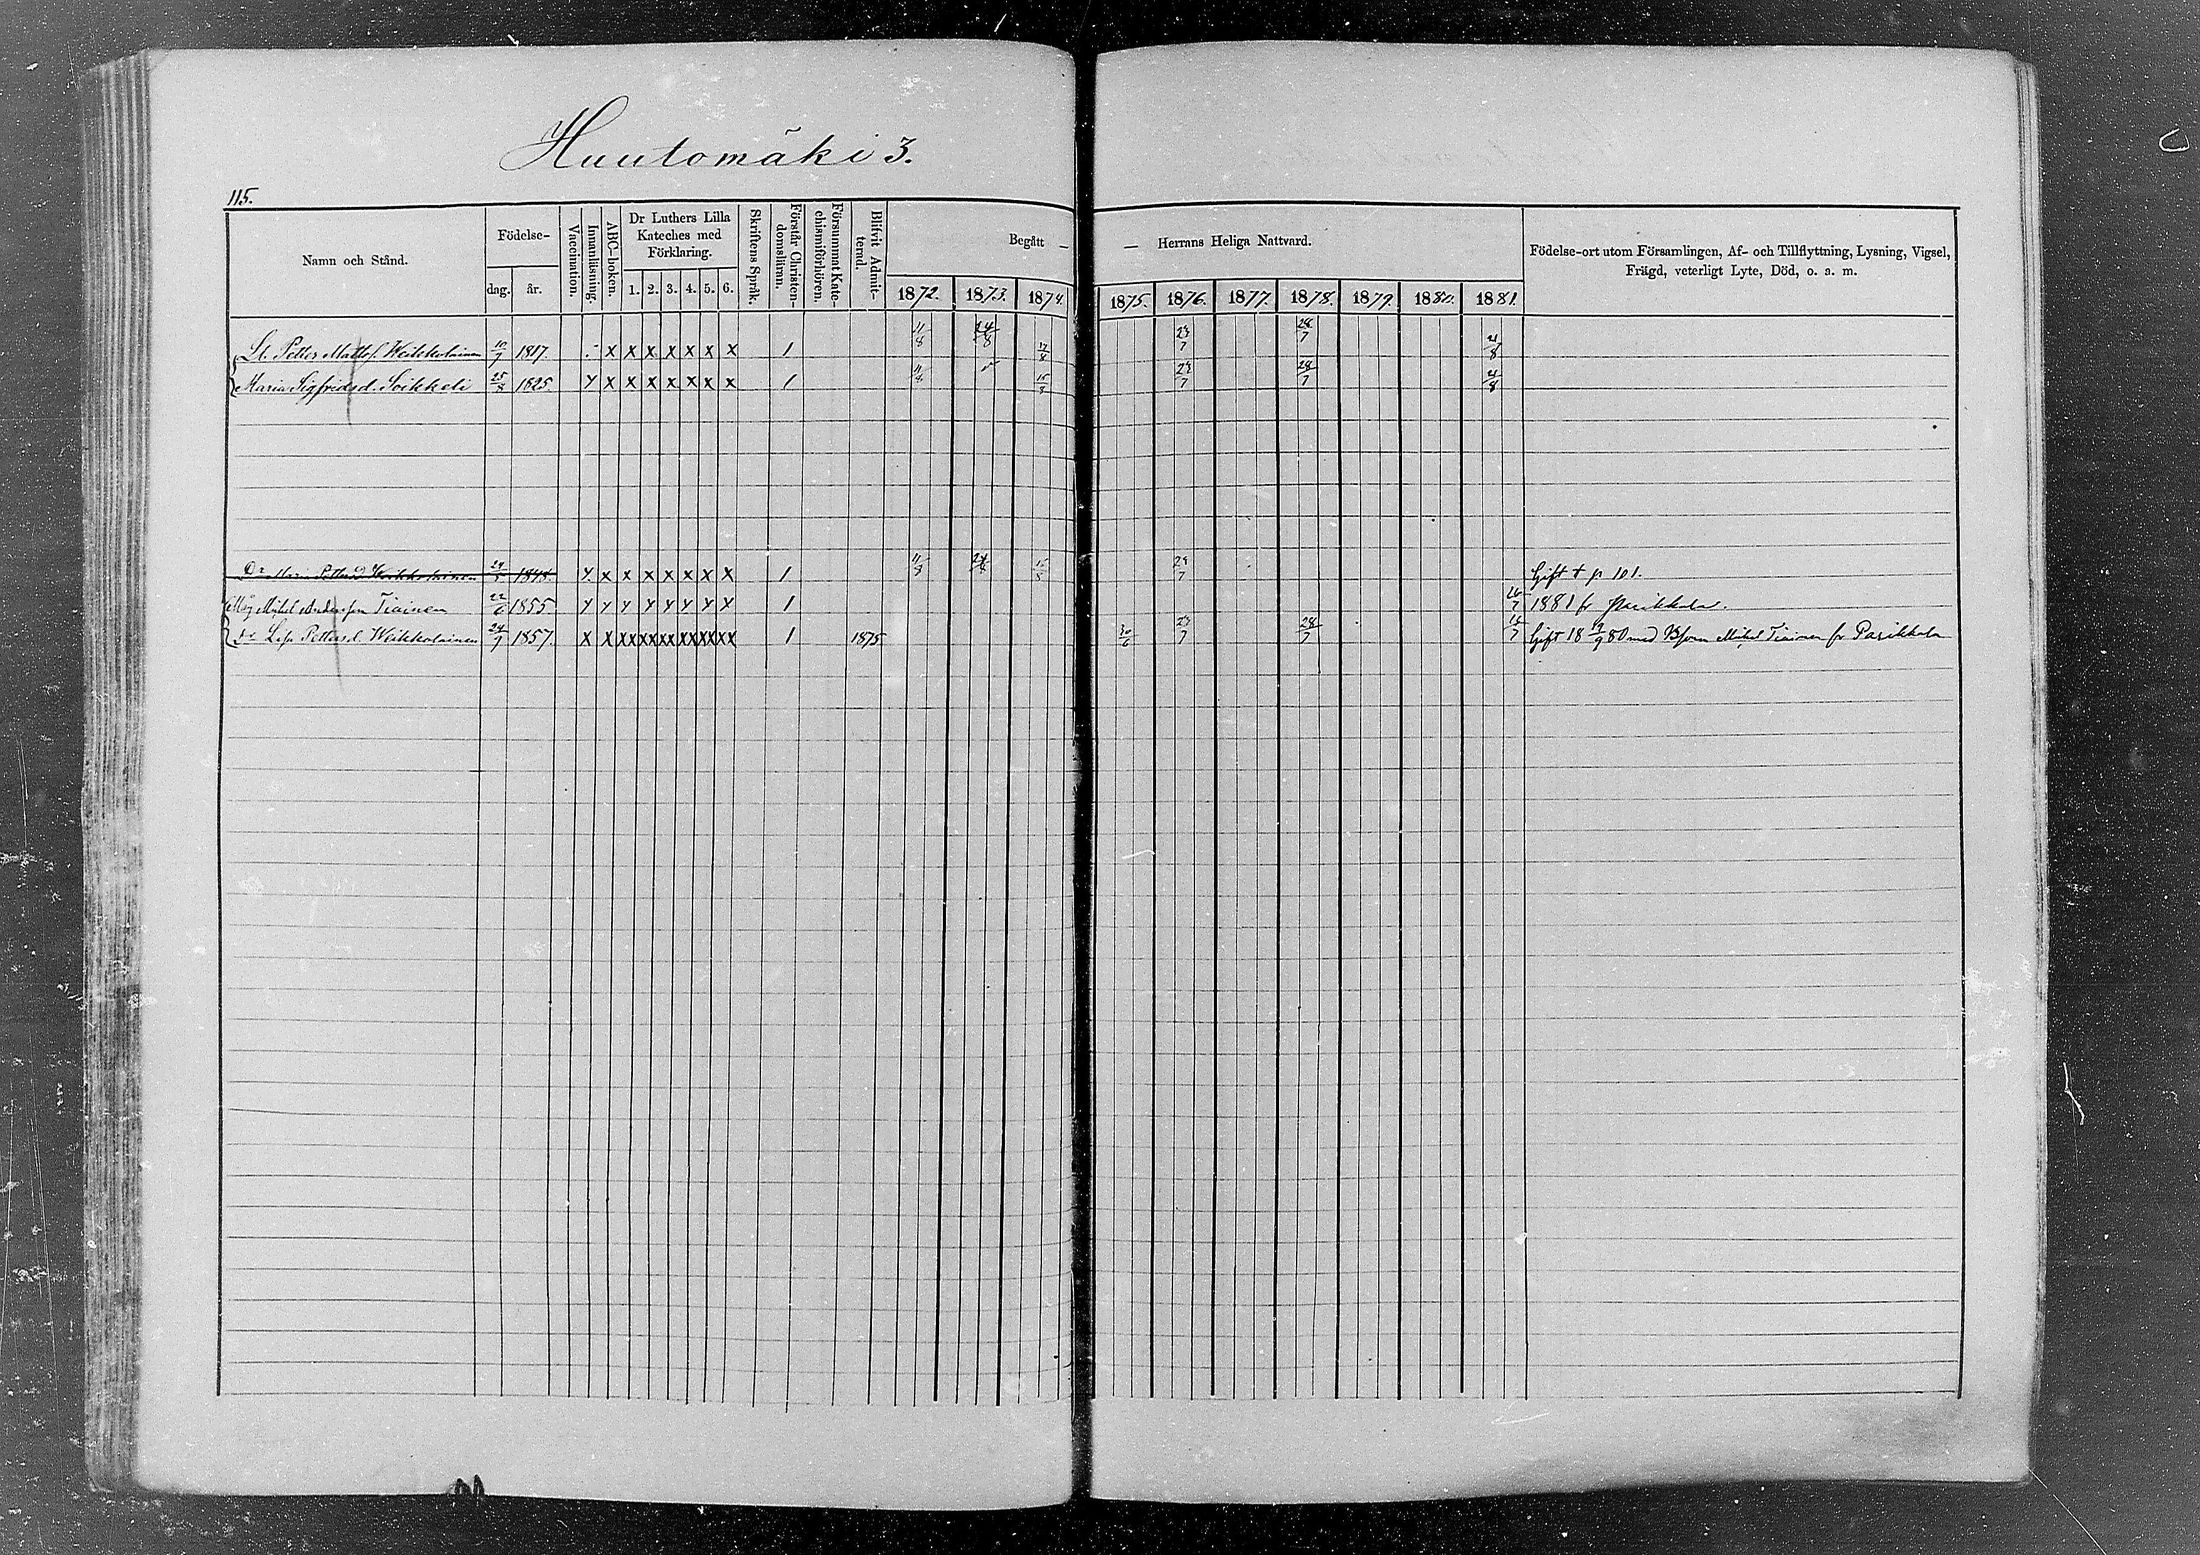 Huutomäki 3.
115.
Namn och Stånd.
Födelse-
dag.
år.
Vaccination.
Innanläsning.
ABC-boken.
Dr Luthers Lilla
Kateches med
Förklaring.
1. 2. 3. 4. 5. 6.
Skriftens Språk.
Förstår Christen-
domsläran.
Försummat Kate-
chismiförhören.
Blifvit Admit-
terad.
Begått — — Herrans Heliga Nattvard.
1872. 1873. 1874. 1875. 1876. 1877. 1878. 1879. 1880. 1881.
Födelse-ort utom Församlingen, Af- och Tillflyttning, Lysning, Vigsel,
Frägd, veterligt Lyte, Död, o. s. m.
Petter Matts. Weikkolainen 10/7 1817. x x x x x x x 1 11/8 24/8 17/8 23/7 28/7 21/8
Maria Sigfridsd. Soikkeli 25/8 1825. y x x x x x x x 1 11/8 15/8 23/7 28/7 21/8
Dr Maria Pettersd Weikkolainen 1848 y x x x x x x x 1 11/8 24/8 15/8 23/7 Gift + p 101.
Måg Mihel Andersson Tiainen 22/6 1855 y y y y y y y x 1 1881 fr Parikkala.
Dr Lisa Pettersd. Weikkolainen 24/9 1857. x x xx xx xx xx xx xx 1 1875 30/6 23/7 28/7 Gift 18 80 med Mihel Tiainen fr Parikkala